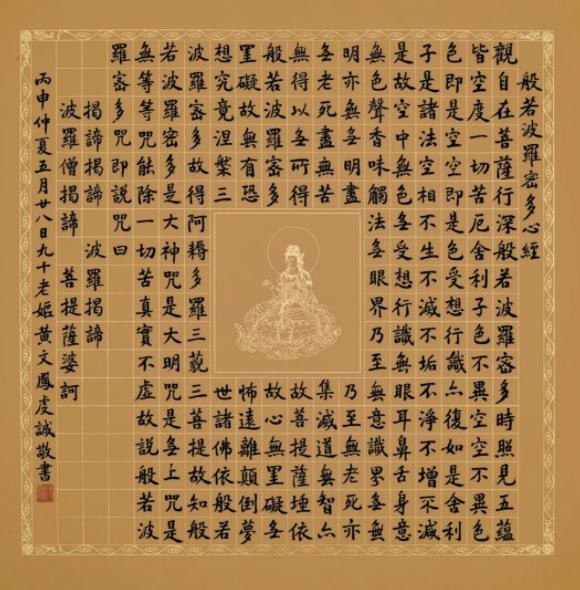 般若波羅密多心經
觀自在菩薩行深般若波羅密多時照見五蘊
皆空度一切苦厄舍利子色不異空空不異色
色即是空空即是色受想行識亦復如是舍利
子是諸法空相不生不滅不垢不淨不增不減
是故空中無色无受想行識無眼耳鼻舌身意
無色聲香味觸法无眼界乃至無意識界无無
明亦無无明盡乃至無老死亦
无老死盡無苦集滅道無智亦
無得以无所得故菩提薩埵依
般若波羅密多故心無罣礙无
罣礙故無有恐怖遠離顛倒夢
想究竟涅槃三世諸佛依般若
波羅密多故得阿耨多羅三藐三菩提故知般
若波羅密多是大神咒是大明咒是无上咒是
無等等咒能除一切苦真實不虛故說般若波
羅密多咒即說咒曰
揭諦揭諦 波羅揭諦
波羅僧揭諦 菩提薩婆訶
丙申仲夏五月廿八日九十老嫗黃文鳳虔誠敬書